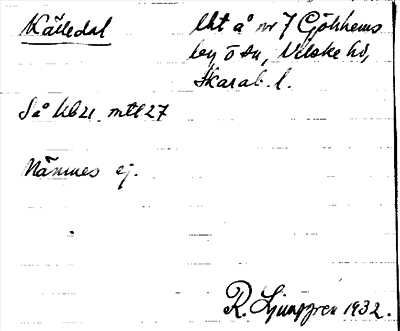 Källedal
lht å nr 7 Gökhems
by ö sn, Vilske hd,
Skarab. l.
Så Ub 21. mtl 27
Nämnes ej.
R. Ljunggren 1932.